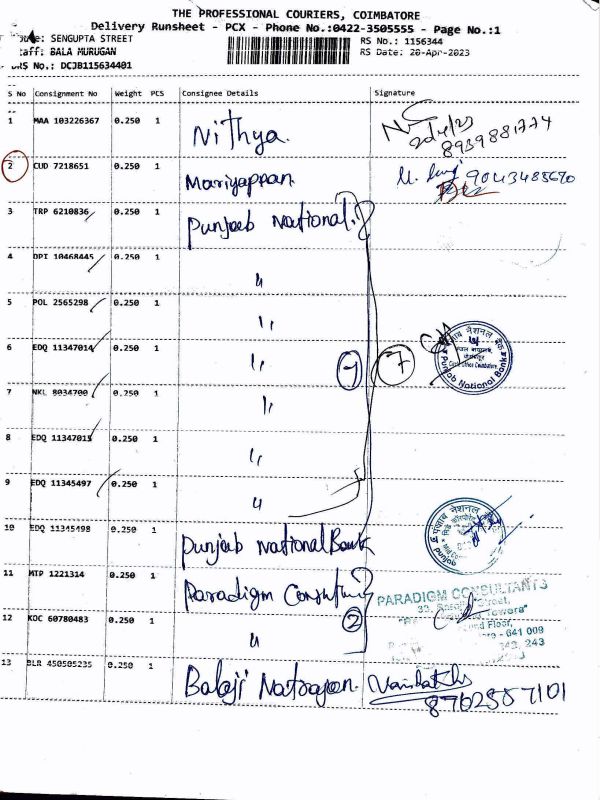 THE PROFESSIONAL COURIERS, COIMBATORE
Delivery Runsheet - PCX - Phone No.:0422-3505555 - Page No.:1
SENGUPTA STREET
RS No.: 1156344
BALA MURUGAN
RS Date: 20-Apr-2023
DRS No.: DCJB115634401
S No Consignment No Weight PCS Consignee Details Signature
1 MAA 103226367 0.250 1 Nithya. 20/4/23
8939881774
2 CUD 7218651 0.250 1 Mariyappan. 9043485670
3 TRP 6210836 0.250 1 Punjab National.
4 DPI 10468445 0.250 1 "
5 POL 2565298 0.250 1 "
6 EDQ 11347014 0.250 1 "
9 7
पंजाब नेशनल बैंक
Punjab National Bank
7 NKL 8034700 0.250 1 "
8 EDQ 11347015 0.250 1 "
9 EDQ 11345497 0.250 1 "
10 EDQ 11345498 0.250 1 Punjab National Bank
11 MTP 1221314 0.250 1 Paradigm
PARADIGM CONSULTANTS
33, Street,
Towers"
Floor,
- 641 009
243
12 KOC 60780483 0.250 1 "
2
13 BLR 450505235 0.250 1 Balaji Natrajan.
8762587101